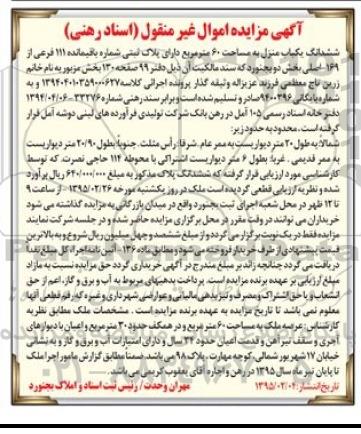 آگهی مزایده اموال غیر منقول (اسناد رهنی)
ششدانگ یکباب منزل به مساحت ۶۰ مترمربع دارای پلاک ثبتی شماره باقیمانده ۱۱۱ فرعی از
۱۶۹- اصلی بخش دو بجنورد که سند مالکیت آن ذیل دفتر ۹۹ صفحه ۱۳۰ بخش مزبور به نام خانم
زرین تاج معظمی فرزند عزیزاله وثیقه گذار پرونده اجرائی کلاسه ۱۳۹۴۰۴۰۱۰۳۵۹۰۰۰۶۲۷ و به
شماره بایگانی ۹۴۰۰۳۹۶ صادر و تسلیم شده است و برابر سند رهنی شماره ۳۳۲۷۶ - ۱۳۹۴/۰۴/۰۶
دفترخانه اسناد رسمی ۱۰۵ آمل در رهن بانک شرکت تولیدی فرآورده های لبنی دوشه آمل قرار
گرفته است. محدوده به حدود زیر:
شمالا: به طول ۲۰ متر دیواریست به ممر عام. شرقا: رأس مثلث. جنوبا: بطول ۲۰/۹۰ متر دیواریست
به ممر قدیمی. غربا: بطول ۶ متر دیواریست اشتراکی با محوطه ۱۱۴ حاجی نصرت. که توسط
کارشناسی مورد ارزیابی قرار گرفته که ششدانگ پلاک مذکور به مبلغ ۶۴۰/۰۰۰/۰۰۰ ریال برآورد
شده و نظریه ارزیابی قطعی گردیده است ملک در روز یکشنبه مورخه ۱۳۹۵/۰۲/۲۶ - از ساعت ۹
تا ۱۲ ظهر در محل شعبه اجرای ثبت بجنورد واقع در میدان بازرگانی به مزایده گذاشته می شود
خریداران می توانند در وقت مقرر در محل برگزاری مزایده حاضر شده و در جلسه شرکت نمایند
مزایده فقط در یک نوبت برگزار می گردد و از مبلغ ششصد و چهل میلیون ریال شروع و به بالاترین
قیمت پیشنهادی از طرف خریدار فروخته می شود و مطابق ماده ۱۳۶- آئین نامه اجراء کل مبلغ نقدا
دریافت می گردد چنانچه زائد بر مبلغ مندرج در آگهی خریداری گردد حق مزایده نسبت به مازاد
مبلغ ارزیابی بر عهده برنده مزایده است. پرداخت بدهیهای مربوط به آب و برق و گاز، اعم از حق
انشعاب و یا حق اشتراک و مصرف و نیز بدهی مالیاتی و عوارض شهرداری و غیره که رقم قطعی آنها
معلوم نمی باشد تا تاریخ مزایده به عهده برنده مزایده است. مشخصات ملک مطابق نظریه
کارشناس: عرصه ملک به مساحت ۶۰ متر مربع و در همکف حدود ۳۰ متر مربع و اعیان با دیوارهای
آجری و سقف تیرآهن و قدمت اعیان حدود ۳۴ سال و دارای امتیازات آب و برق و گاز و به نشانی
خیابان ۱۷ شهریور شمالی، کوچه مهارت، پلاک ۹۸ می باشد. ضمنا مطابق گزارش مامور اجرا ملک
تا پایان تیرماه سال ۱۳۹۵ در رهن و اجاره آقای یعقوب کریمی می باشد.
تاریخ انتشار: ۱۳۹۵/۰۲/۰۴ مهران وحدت/ رئیس ثبت اسناد و املاک بجنورد